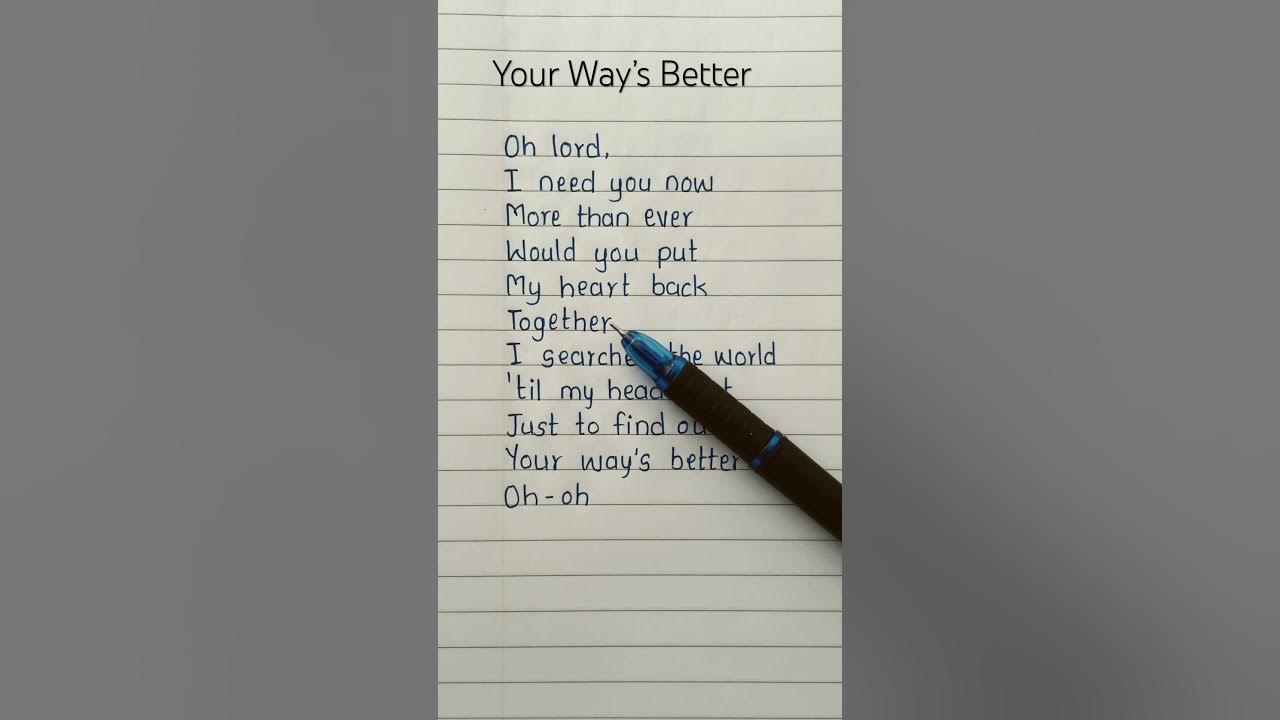 Your Way's Better
Oh lord,
I need you now
More than ever
Would you put
My heart back
Together
I the world
'til my
Just to find
Your way's better
Oh-oh